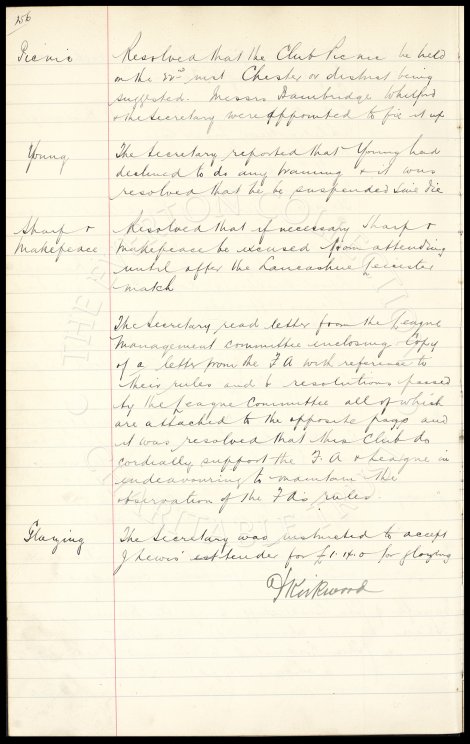 256
Picnic Resolved that the Club Picnic be held
on the 22nd inst Chester or district being
suggested. Messrs Bainbridge Whitford
& the Secretary were appointed to fix it up
Young The Secretary reported that Young had
declined to do any training & it was
resolved that he be suspended Sine Die
Sharp & Resolved that if necessary Sharp &
Makepeace Makepeace be excused from attending
until after the Lancashire Leicester
match
The Secretary read letter from the League
Management Committee enclosing Copy
of a letter from the F A with reference to
their rules and 6 resolutions passed
by the League Committee all of which
are attached to the opposite page and
it was resolved that this Club do
cordially support the F. A & League in
endeavouring to maintain the
observation of the F As rules.
Glazing The Secretary was instructed to accept
J Lewis' tender for £1.14.0 for glazing
D Kirkwood